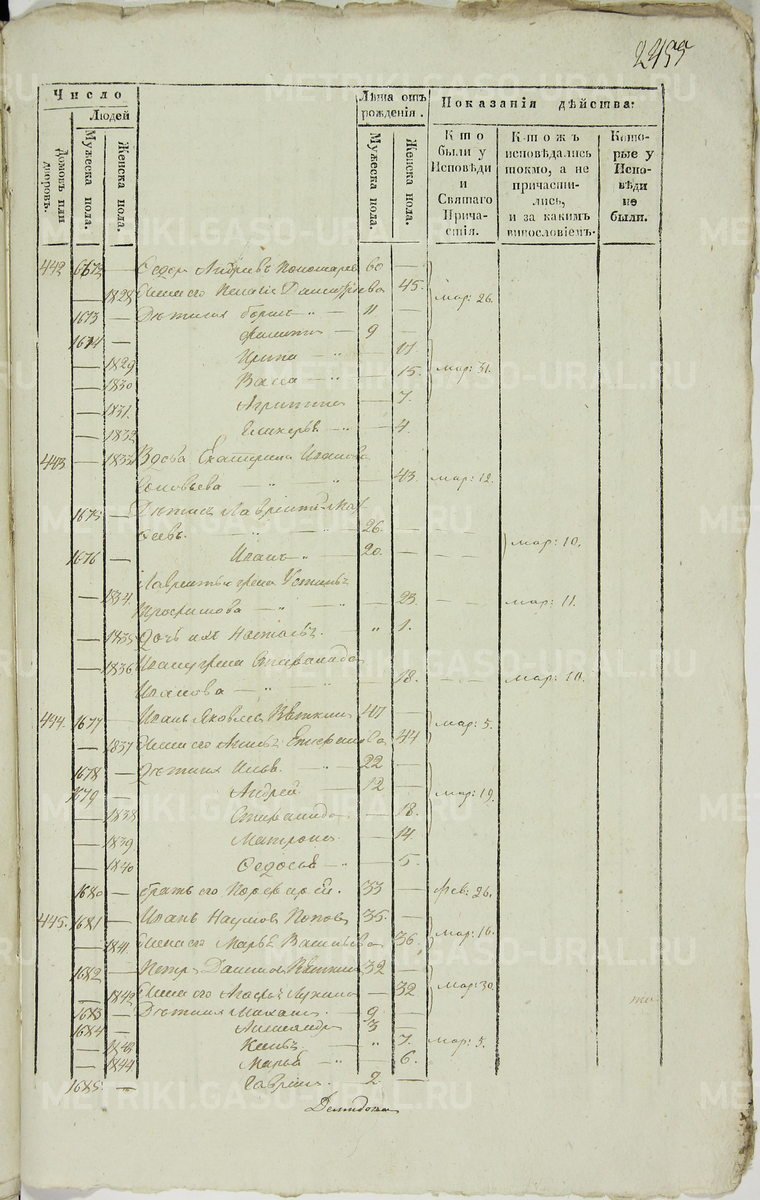 2455
Число
Людей
Домовъ или дворовъ.
Мужеска пола.
Женска пола.
Лѣта отъ рожденія.
Мужеска пола.
Женска пола.
Показанія дѣйства:
Кто были у Исповѣди и Святаго Причастія.
Ктожъ исповѣдались токмо, а не причастились, и за какимъ винословіемъ.
Которые у Исповѣди не были.
442 1672 — Пономаревъ 60 —
— 1828 Жена его 45. Мар: 26.
1673 — Дѣти ихъ Борисъ — " — 11 —
1674 — Филиппъ — 9 —
— 1829 Ирина — " — — 17
— 1830 Васса — " — — 15. Мар: 31.
— 1831. Агрипина — 7.
— 1832 Гликерья — " — — 4.
443 — 1833 Вдова Екатерина Иванова
Соловьева — " — " — 43. Мар: 12.
1675 — Дѣти Лаврентій
26. — —
1676 — Иванъ — " — 20. — — Мар: 10.
Лаврентья жена Устинья
— 1834. Трофимова — " — " — 23. — — Мар: 11.
— 1835 Дочь ихъ Наталья. — " 1.
— 1836 Ивана жена Степанида
Иванова — " — " — 18. — — Мар: 10.
444. 1677 — Иванъ Яковлевъ Вяткинъ 47 — Мар: 5.
— 1837 Жена его Анисья 44
1678 — Дѣти ихъ Илья. — " — 22 —
1679 — Андрей. — 12 — Мар: 19.
— 1838 Степанида — 18.
— 1839 Матрона. — 14.
— 1840 Ѳедосья — " — — 5.
1680 — братъ его Порфирій. — 33 — Фев: 26.
445. 1681 — Иванъ Наумовъ Поповъ 35. —
— 1841. Жена его Марья Васильева 36. Мар: 16.
1682 — Петръ Даниловъ Вяткинъ 32 —
— 1842 Жена его 32 Мар: 30.
1683 — Дѣти ихъ Михаилъ. — 9 —
1684 — Александръ 3 —
— 1843 " 7. Мар: 5.
— 1844 Марья — " — 6.
1685. — Гаврилъ. 2 —
METRIKI.GASO-URAL.RU